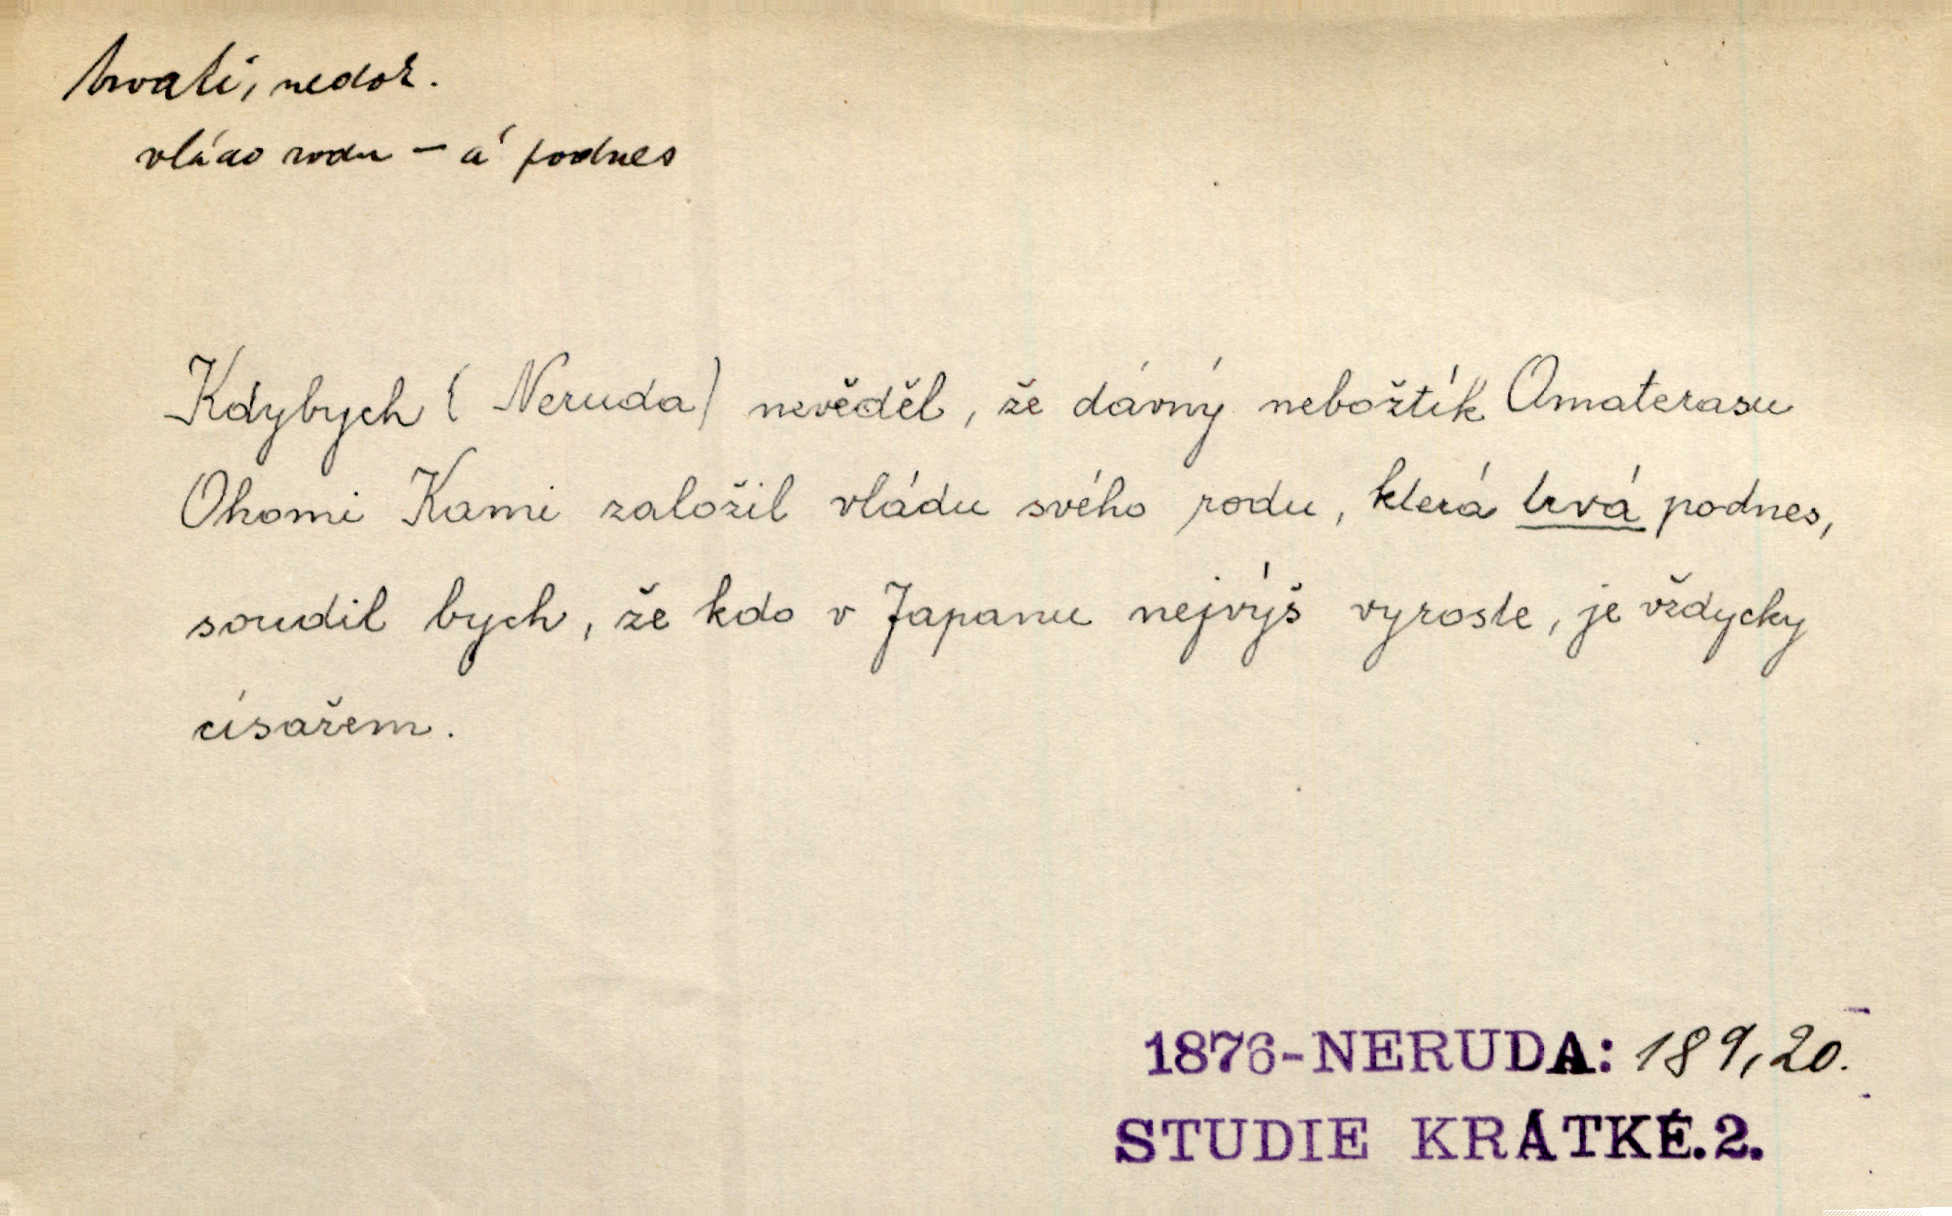 trvati, nedok.
vláda rodu – á podnes
Kdybych (Neruda) nevěděl, že dávný nebožtík Amaterasu
Ohomi Kami založil vládu svého rodu, která trvá podnes,
soudil bych, že kdo v Japanu nejvýš vyroste, je vždycky
císařem.
1876-NERUDA: 189,20.
STUDIE KRÁTKÉ.2.